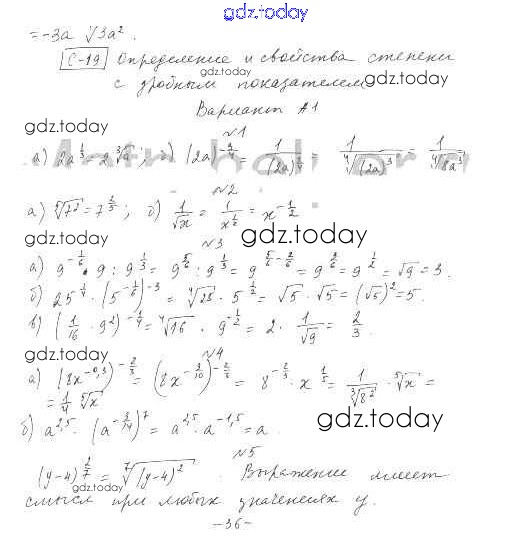 gdz.today
= -3a ∜3a².
С-19 Определение и свойства степени
gdz.today
с дробным показателем gdz.today
Вариант А1
gdz.today
№1
а) 2a^{1/3} = 2∛a; б) (2a)^{-3/4} = 1/(2a)^{3/4} = 1/∜(2a)³ = 1/∜8a³
№2
а) ⁵√7² = 7^{2/5}; б) 1/√x = 1/x^{1/2} = x^{-1/2}
gdz.today
№3 gdz.today
а) 9^{-1/6} · 9 : 9^{1/3} = 9^{5/6} : 9^{1/3} = 9^{5/6 - 2/6} = 9^{3/6} = 9^{1/2} = √9 = 3.
б) 25^{1/4} · (5^{-1/6})^{-3} = ∜25 · 5^{1/2} = √5 · √5 = (√5)² = 5.
в) (1/16 · 9²)^{-1/4} = ∜16 · 9^{-1/2} = 2 · 1/√9 = 2/3.
gdz.today
№4
а) (8x^{-0,3})^{-2/3} = (8x^{-3/10})^{-2/3} = 8^{-2/3} · x^{1/5} = 1/∛8² · ⁵√x =
= 1/4 ⁵√x gdz.today
б) a^{2,5} · (a^{-3/14})^7 = a^{2,5} · a^{-1,5} = a.
gdz.today
№5
(y-4)^{2/7} = ⁷√(y-4)². Выражение имеет
gdz.today
смысл при любых значениях y.
gdz.today
-36-